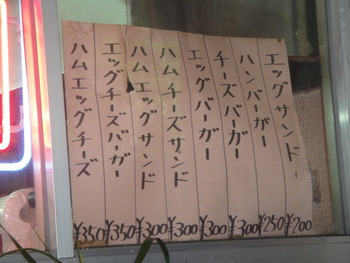 エッグサンド ¥200
ハンバーガー ¥250
チーズバーガー ¥300
エッグバーガー ¥300
ハムチーズサンド ¥300
ハムエッグサンド ¥300
エッグチーズバーガー ¥350
ハムエッグチーズ ¥350